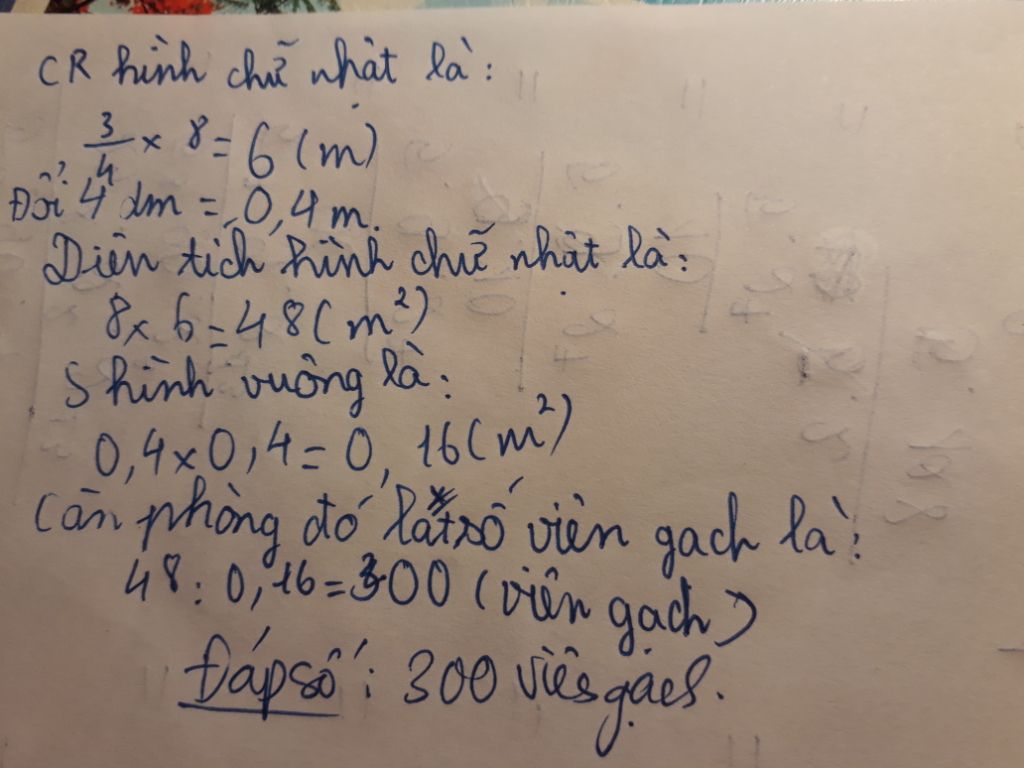 CR hình chữ nhật là:
3/4 x 8 = 6 (m)
Đổi 4 dm = 0,4 m.
Diện tích hình chữ nhật là:
8 x 6 = 48 (m²)
S hình vuông là:
0,4 x 0,4 = 0,16 (m²)
Căn phòng đó lát số viên gạch là:
48 : 0,16 = 300 (viên gạch)
Đáp số: 300 viên gạch.